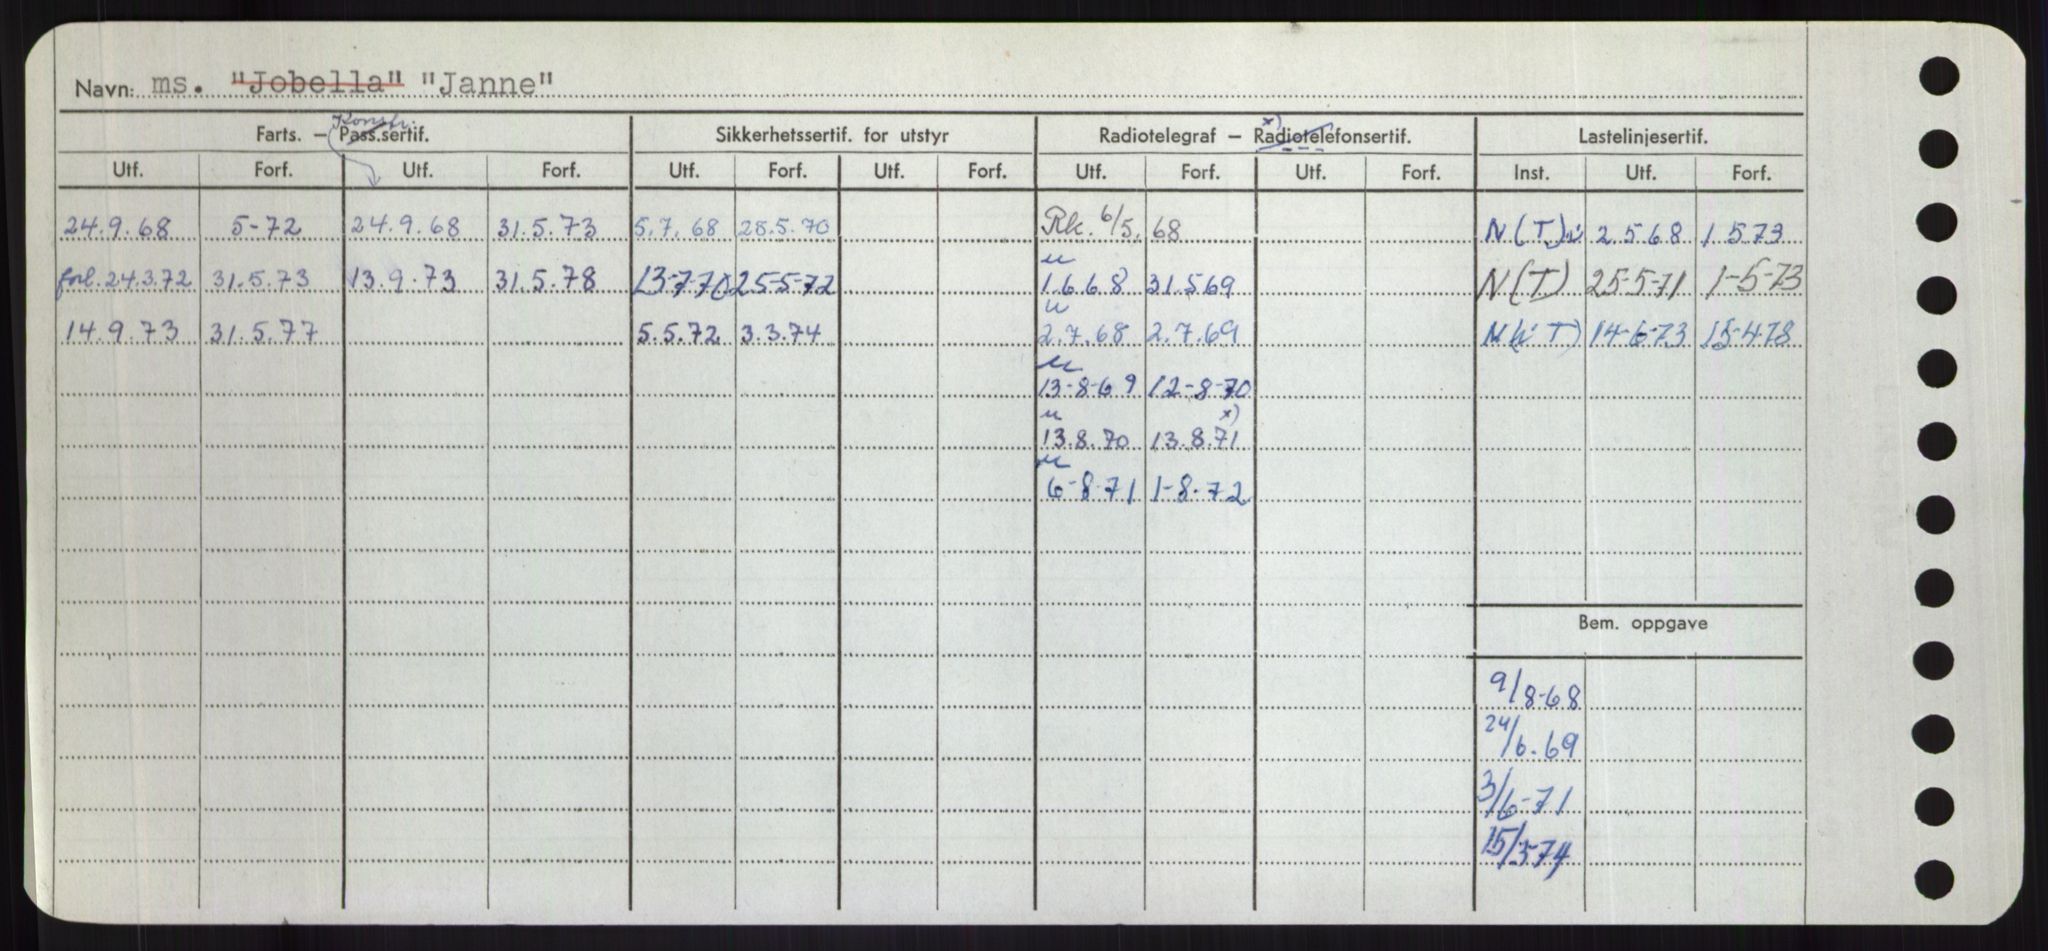 Navn: ms. "Jobella" "Janne"
Konstr.
Farts. – Pass.sertif. Sikkerhetssertif. for utstyr Radiotelegraf – x) Radiotelefonsertif. Lastelinjesertif.
Utf. Forf. Utf. Forf. Utf. Forf. Utf. Forf. Utf. Forf. Utf. Forf. Inst. Utf. Forf.
24.9.68 5-72 24.9.68 31.5.73 5.7.68 28.5.70 Rk. 6/5.68 N(T) 2.5.68 1.5.73
u
forl. 24.3.72 31.5.73 13.9.73 31.5.78 13-7-70 25-5-72 1.6.68 31.5.69 N(T) 25-5-71 1-5-73
u
14.9.73 31.5.77 5.5.72 3.3.74 2.7.68 2.7.69 14-6-73 15-4-78
u
13-8-69 12-8-70
u x)
13.8.70 13.8.71
u
6-8-71 1-8-72
Bem. oppgave
9/8-68
24/6.69
3/6-71
15/3-74